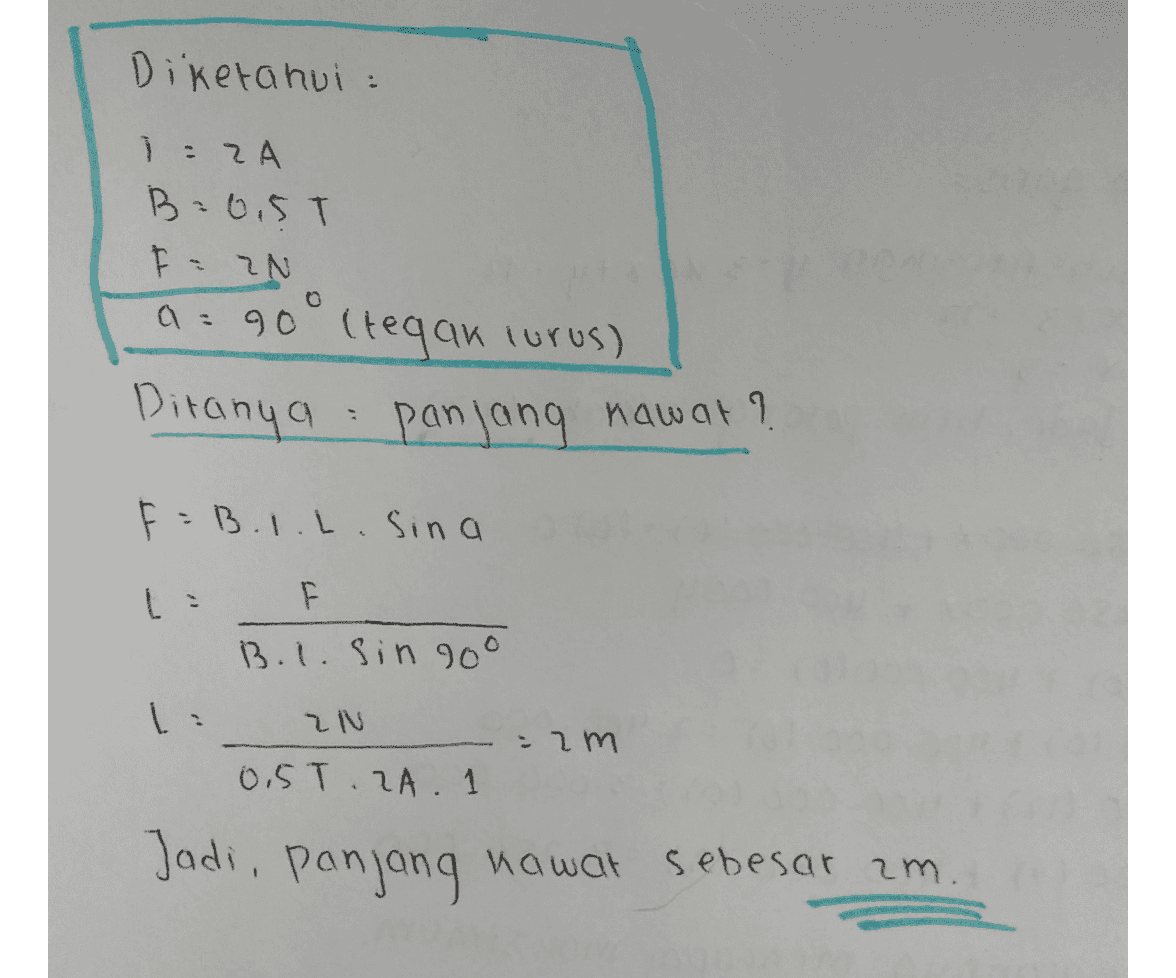 Diketahui :
I = 2A
B = 0,5 T
F = 2N
a = 90° (tegak lurus)
Ditanya : panjang kawat ?
F = B . I . L . Sin a
L = F / B . I . Sin 90°
L = 2N / 0,5 T . 2A . 1 = 2m
Jadi, panjang kawat sebesar 2m.